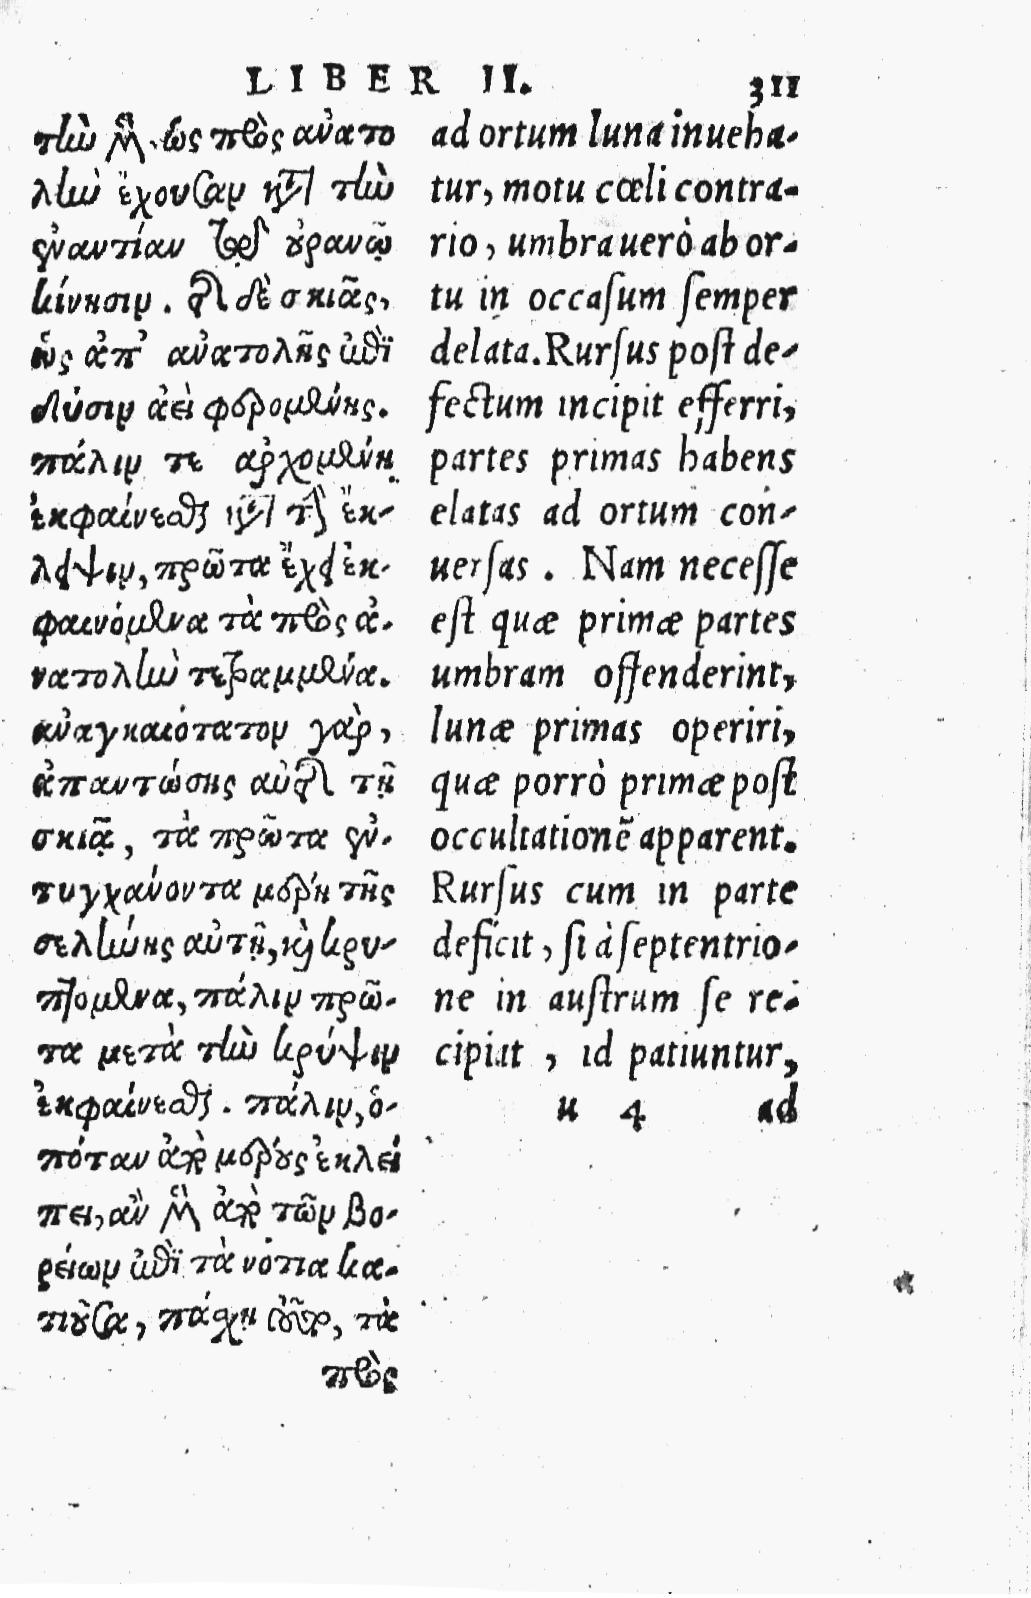 LIBER II. 311
τὴν μὲν, ὡς πρὸς ἀνατο
λὴν ἔχουσαν κατὰ τὴν
ἐναντίαν τῷ οὐρανῷ
κίνησιν. τῆς δὲ σκιᾶς,
ὡς ἀπ' ἀνατολῆς ἐπὶ
δύσιν ἀεὶ φερομένης.
πάλιν τε ἀρχομένη
ἐκφαίνεσθαι κατὰ τὴν ἔκ-
λειψιν, πρῶτα ἔχει ἐκ-
φαινόμενα τὰ πρὸς ἀ-
νατολὴν τετραμμένα.
ἀναγκαιότατον γὰρ,
ἀπαντώσης αὐτῆς τῇ
σκιᾷ, τὰ πρῶτα ἐν-
τυγχάνοντα μέρη τῆς
σελήνης αὐτῇ, καὶ κρυ-
πτόμενα, πάλιν πρῶ-
τα μετὰ τὴν κρύψιν
ἐκφαίνεσθαι. πάλιν, ὁ-
πόταν ἀπὸ μέρους ἐκλεί
πει, ἂν μὲν ἀπὸ τῶν βο-
ρείων ἐπὶ τὰ νότια κα-
τιοῦσα, πάσχῃ τοῦτο, τὰ
πρὸς
ad ortum luna inueha-
tur, motu cœli contra-
rio, umbra uerò ab or-
tu in occaſum ſemper
delata. Rurſus poſt de-
fectum incipit efferri,
partes primas habens
elatas ad ortum con-
uerſas. Nam neceſſe
eſt quæ primæ partes
umbram offenderint,
lunæ primas operiri,
quæ porrò primæ poſt
occultationẽ apparent.
Rurſus cum in parte
deficit, ſi à ſeptentrio-
ne in auſtrum ſe re-
cipiat, id patiuntur,
u 4 ad